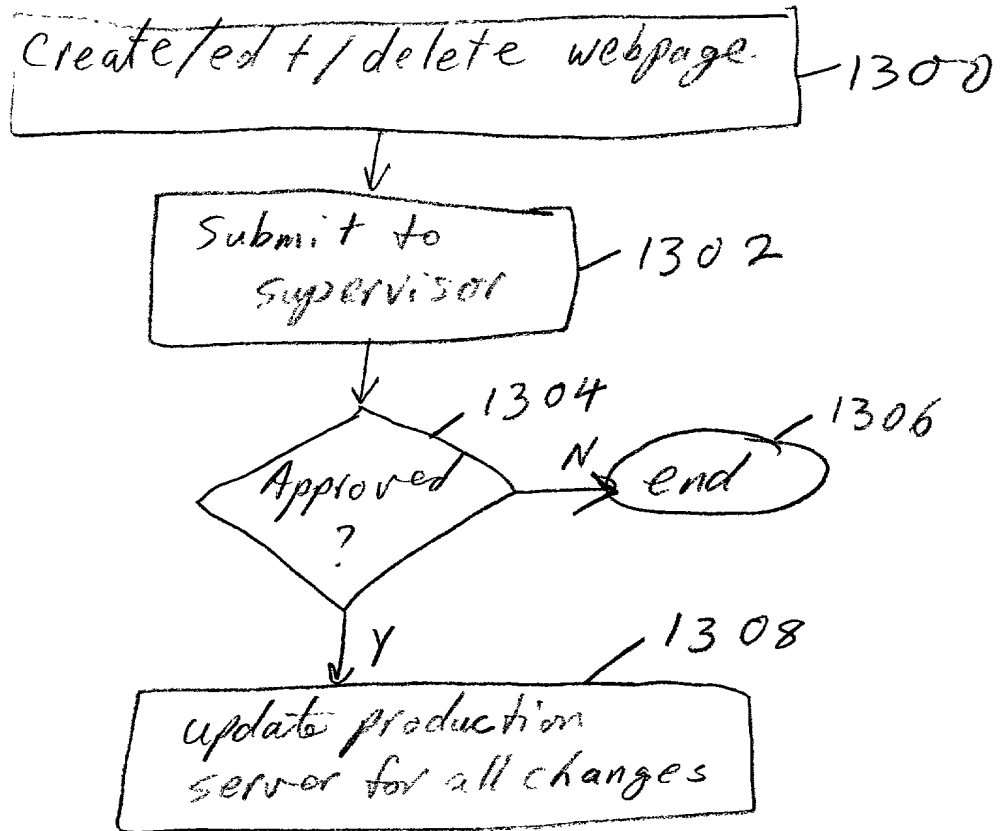 Create/edit/delete webpage.
1300
Submit to
supervisor
1302
1304
Approved
?
N
end
1306
Y
1308
update production
server for all changes